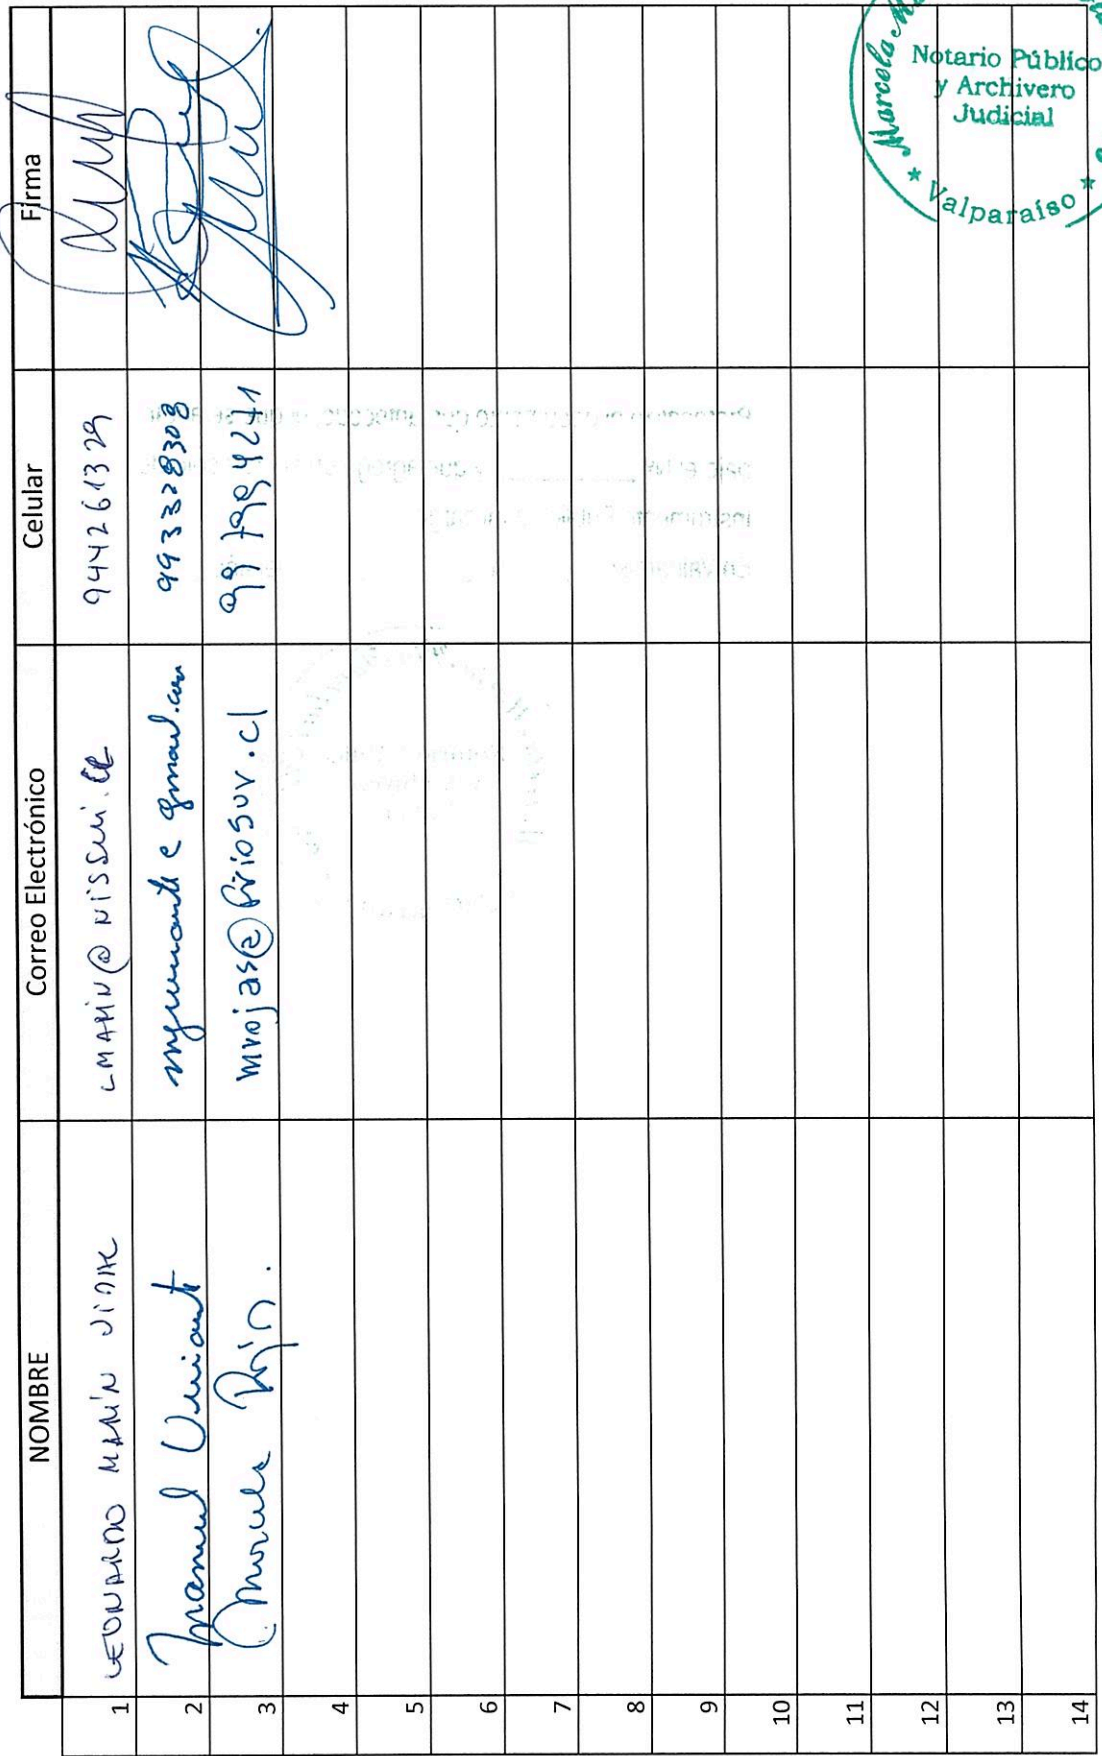 NOMBRE Correo Electrónico Celular Firma
1 LEONARDO MARÍN VIDAL LMARIN@NISSUI.CL 944261329
2 Manuel 993328308
3 Marcela Rojas. mrojas@friosur.cl
4
5
6
7
8
9
10
11
12
13
14
Marcela
Notario Público
y Archivero
Judicial
* Valparaíso *